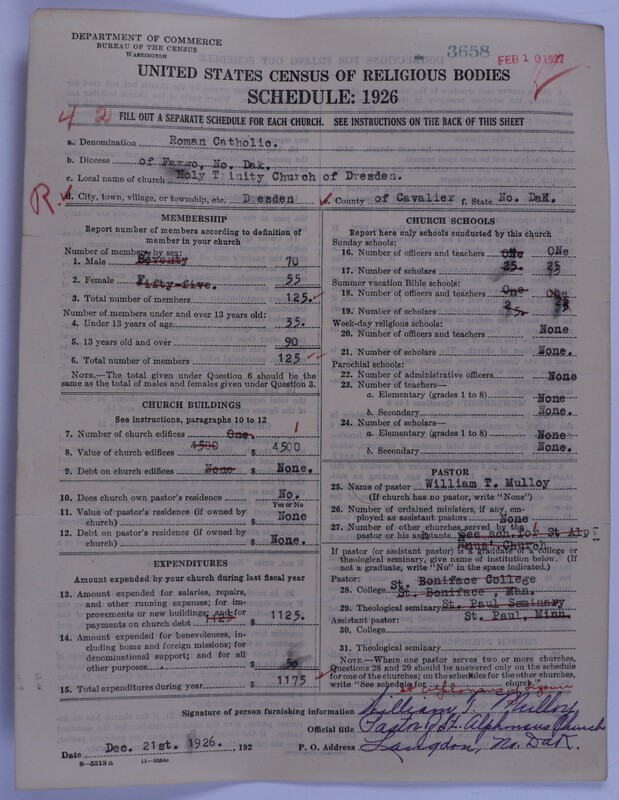 DEPARTMENT OF COMMERCE
BUREAU OF THE CENSUS
WASHINGTON
3658
FEB 10 1927
UNITED STATES CENSUS OF RELIGIOUS BODIES
SCHEDULE: 1926
4 2
FILL OUT A SEPARATE SCHEDULE FOR EACH CHURCH. SEE INSTRUCTIONS ON THE BACK OF THIS SHEET
a. Denomination Roman Catholic.
b. Diocese of Fargo, No. Dak.
c. Local name of church Holy Trinity Church of Dresden.
R
d. City, town, village, or township, etc. Dresden e. County of Cavalier f. State No. Dak.
MEMBERSHIP
Report number of members according to definition of
member in your church
Number of members by sex:
1. Male Seventy 70
2. Female Fifty-five. 55
3. Total number of members 125.
Number of members under and over 13 years old:
4. Under 13 years of age 35.
5. 13 years old and over 90
6. Total number of members 125
NOTE.—The total given under Question 6 should be
same as the total of males and females given under Question 3.
CHURCH BUILDINGS
See instructions, paragraphs 10 to 12
7. Number of church edifices One. 1
8. Value of church edifices 4500 $ 4500
9. Debt on church edifices None $ None.
10. Does church own pastor's residence No.
Yes or No
11. Value of pastor's residence (if owned by
church) $ None
12. Debt on pastor's residence (if owned by
church) $ None.
EXPENDITURES
Amount expended by your church during last fiscal year
13. Amount expended for salaries, repairs,
and other running expenses; for im-
provements or new buildings; and for
payments on church debt 1125 $ 1125.
14. Amount expended for benevolences, in-
cluding home and foreign missions; for
denominational support; and for all
other purposes $ 50
15. Total expenditures during year $ 1175
CHURCH SCHOOLS
Report here only schools conducted by this church
Sunday schools:
16. Number of officers and teachers One One
17. Number of scholars 25. 25
Summer vacation Bible schools:
18. Number of officers and teachers One One
19. Number of scholars
Week-day religious schools:
20. Number of officers and teachers None
21. Number of scholars None.
Parochial schools:
22. Number of administrative officers None
23. Number of teachers—
a. Elementary (grades 1 to 8) None
b. Secondary None.
24. Number of scholars—
a. Elementary (grades 1 to 8) None
b. Secondary None.
PASTOR
25. Name of pastor William T. Mulloy
(If church has no pastor, write "None")
26. Number of ordained ministers, if any, em-
ployed as assistant pastors None
27. Number of other churches served by the 1
pastor or his assistants. See sch. for St Alp-
Church
If pastor (or assistant pastor) is a graduate of a college or
theological seminary, give name of institution below. (If
not a graduate, write "No" in the space indicated.)
Pastor: St. Boniface College
28. College St. Boniface, Man.
29. Theological seminary St. Paul Seminary
St. Paul, Minn.
Assistant pastor:
30. College
31. Theological seminary
NOTE.—Where one pastor serves two or more churches,
Questions 28 and 29 should be answered only on the schedule
for one of the churches; on the schedules for the other churches,
write "See schedule for church."
Signature of person furnishing information William T. Mulloy
Official title Pastor of St. Alphonsus Church
Date Dec. 21st. 1926. , 192 P. O. Address Langdon, No. Dak.
8—5518a 11—9554a